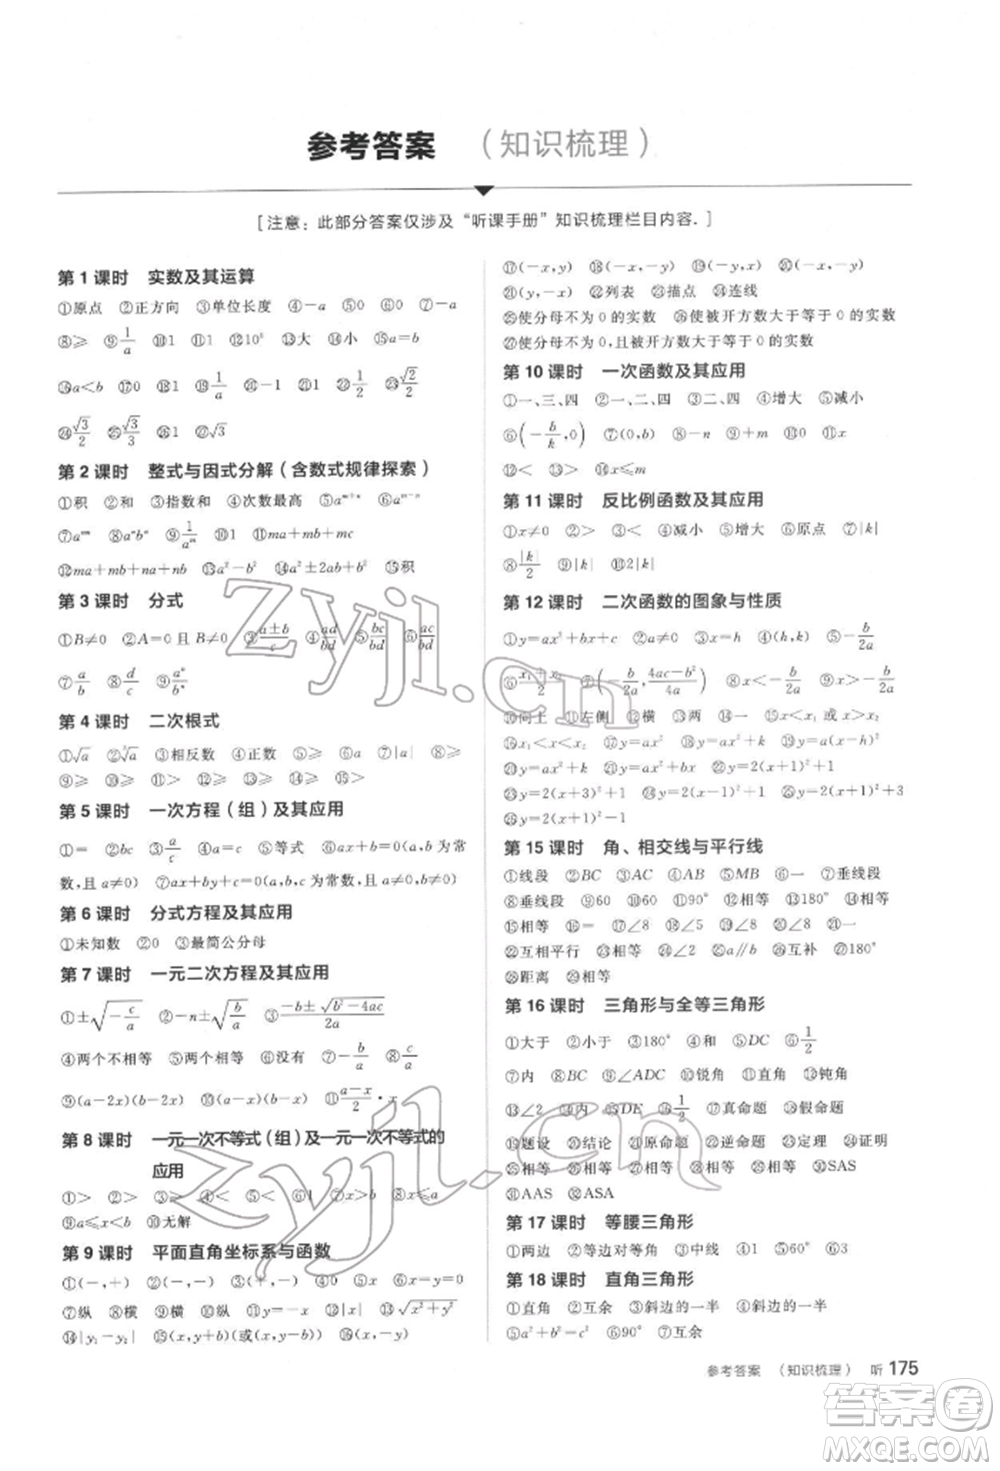 参考答案 （知识梳理）
[注意：此部分答案仅涉及“听课手册”知识梳理栏目内容.]
第 1 课时 实数及其运算
①原点 ②正方向 ③单位长度 ④－a ⑤0 ⑥0 ⑦－a
⑧≥ ⑨1/a ⑩1 ⑪1 ⑫10⁶ ⑬大 ⑭小 ⑮a＝b
⑯a＜b ⑰0 ⑱1/a ⑲1 ⑳－1 ㉑1 ㉒1/2 ㉓√2/2
㉔√3/2 ㉕√3/3 ㉖1 ㉗√3
第 2 课时 整式与因式分解（含数式规律探索）
①积 ②和 ③指数和 ④次数最高 ⑤aᵐ⁺ⁿ ⑥aᵐ⁻ⁿ
⑦aᵐⁿ ⑧aⁿbⁿ ⑨1/aᵐ ⑩1 ⑪ma＋mb＋mc
⑫ma＋mb＋na＋nb ⑬a²－b² ⑭a²±2ab＋b² ⑮积
第 3 课时 分式
①B≠0 ②A＝0 且 B≠0 ③(a±b)/c ④ad/bd ⑤bc/bd ⑥ac/bd
⑦a/b ⑧d/c ⑨aⁿ/bⁿ
第 4 课时 二次根式
①√a ②∛a ③相反数 ④正数 ⑤≥ ⑥a ⑦|a| ⑧≥
⑨≥ ⑩≥ ⑪≥ ⑫≥ ⑬≥ ⑭≥ ⑮＞
第 5 课时 一次方程（组）及其应用
①＝ ②bc ③a/c ④c ⑤等式 ⑥ax＋b＝0(a,b 为常
数,且 a≠0) ⑦ax＋by＝c(a,b,c 为常数,且 a≠0,b≠0)
第 6 课时 分式方程及其应用
①未知数 ②0 ③最简公分母
第 7 课时 一元二次方程及其应用
①±√(－c/a) ②－n±√(b/a) ③(－b±√(b²－4ac))/2a
④两个不相等 ⑤两个相等 ⑥没有 ⑦－b/a ⑧c/a
⑨(a－2x)(b－2x) ⑩(a－x)(b－x) ⑪(a－x)/2・x
第 8 课时 一元一次不等式（组）及一元一次不等式的
应用
①＞ ②＞ ③＞ ④＜ ⑤＜ ⑥1 ⑦x＞b ⑧x≤a
⑨a≤x＜b ⑩无解
第 9 课时 平面直角坐标系与函数
①(－,＋) ②(－,－) ③(＋,－) ④y＝0 ⑤x＝0 ⑥横
⑦纵 ⑧横 ⑨横 ⑩纵 ⑪|y| ⑫|x| ⑬√(x²＋y²)
⑭|y₁－y₂| ⑮(x,y＋b)(或(x,y－b)) ⑯(x,－y)
⑰(－x,y) ⑱(－x,－y) ⑲(y,x) ⑳(－y,－x)
㉑(y,－x) ㉒列表 ㉓描点 ㉔连线
㉕使分母不为 0 的实数 ㉖使被开方数大于等于 0 的实数
㉗使分母不为 0,且被开方数大于等于 0 的实数
第 10 课时 一次函数及其应用
①一、三、四 ②一、二、四 ③二、四 ④增大 ⑤减小
⑥(－b/k,0) ⑦(0,b) ⑧－n ⑨＋m ⑩0 ⑪x＝a
⑫＜ ⑬＞ ⑭x≤m
第 11 课时 反比例函数及其应用
①x≠0 ②＞ ③＜ ④减小 ⑤增大 ⑥原点 ⑦|k|
⑧|k|/2 ⑨|k| ⑩2|k|
第 12 课时 二次函数的图象与性质
①y＝ax²＋bx＋c ②a≠0 ③x＝h ④(h,k) ⑤－b/2a
⑥(x₁＋x₂)/2 ⑦(－b/2a,(4ac－b²)/4a) ⑧x＜－b/2a ⑨x＞－b/2a
⑩向上 ⑪左侧 ⑫横 ⑬两 ⑭一 ⑮x＜x₁ 或 x＞x₂
⑯x₁＜x＜x₂ ⑰y＝ax² ⑱y＝ax²＋k
⑳y＝ax² ㉑y＝ax²＋k
㉓y＝2(x＋3)²＋1 ㉔y＝2(x－1)²＋1 ㉕y＝2x²＋3
㉖y＝2x²－1
第 15 课时 角、相交线与平行线
①线段 ②BC ③AC ④AC ⑤MB ⑥一 ⑦垂线段
⑧垂线段 ⑨60 ⑩60 ⑪90° ⑫180° ⑬相等 ⑭相等
⑮相等 ⑯一 ⑰∠8 ⑱∠7 ⑲∠8 ⑳∠5 ㉑相等
㉒互相平行 ㉓相等 ㉔∠2 ㉕a∥b ㉖互补 ㉗180°
㉘距离 ㉙相等
第 16 课时 三角形与全等三角形
①大于 ②小于 ③180° ④和 ⑤DC ⑥1/2
⑦内 ⑧BC ⑨∠ADC ⑩锐角 ⑪直角 ⑫钝角
⑬∠2 ⑭内 ⑮DE ⑯1/2 ⑰真命题 ⑱假命题
⑲题设 ⑳结论 ㉑原命题 ㉒逆命题 ㉓定理 ㉔证明
㉕相等 ㉖相等 ㉗相等 ㉘相等 ㉙相等 ㉚SAS
㉛AAS ㉜ASA
第 17 课时 等腰三角形
①两边 ②等边对等角 ③中线 ④1 ⑤60° ⑥3
第 18 课时 直角三角形
①直角 ②互余 ③斜边的一半 ④斜边的一半
⑤a²＋b²＝c² ⑥90° ⑦互余
参考答案 （知识梳理） 听 175
zyjl.cn
zyjl.cn
答案卷
MXQE.COM